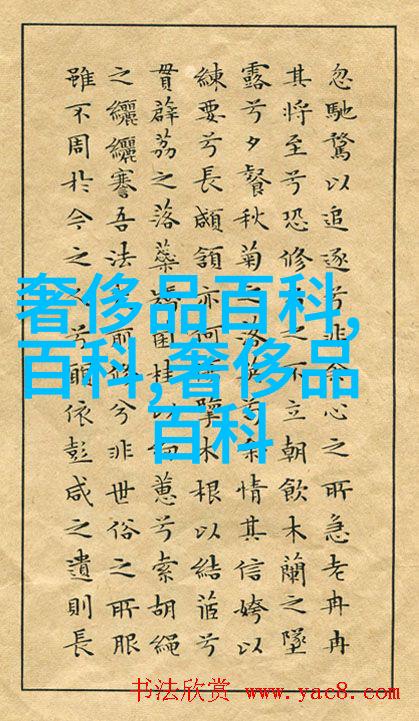 忽馳騖以追逐兮非心之所急老冉冉
其將至兮恐修之不立朝飲木蘭之墜
露兮夕餐秋菊之落情其信姱以
練要兮長顑頷亦何擥木根以結茝兮
貫薜荔之落蘂菌桂以蕙兮索胡繩
之纚纚謇吾法前修兮非世俗之所服
雖不周於今之兮願依彭咸之遺則長
奢侈品百科,
百科,奢侈品
百科
书法欣赏 www.yac8.com